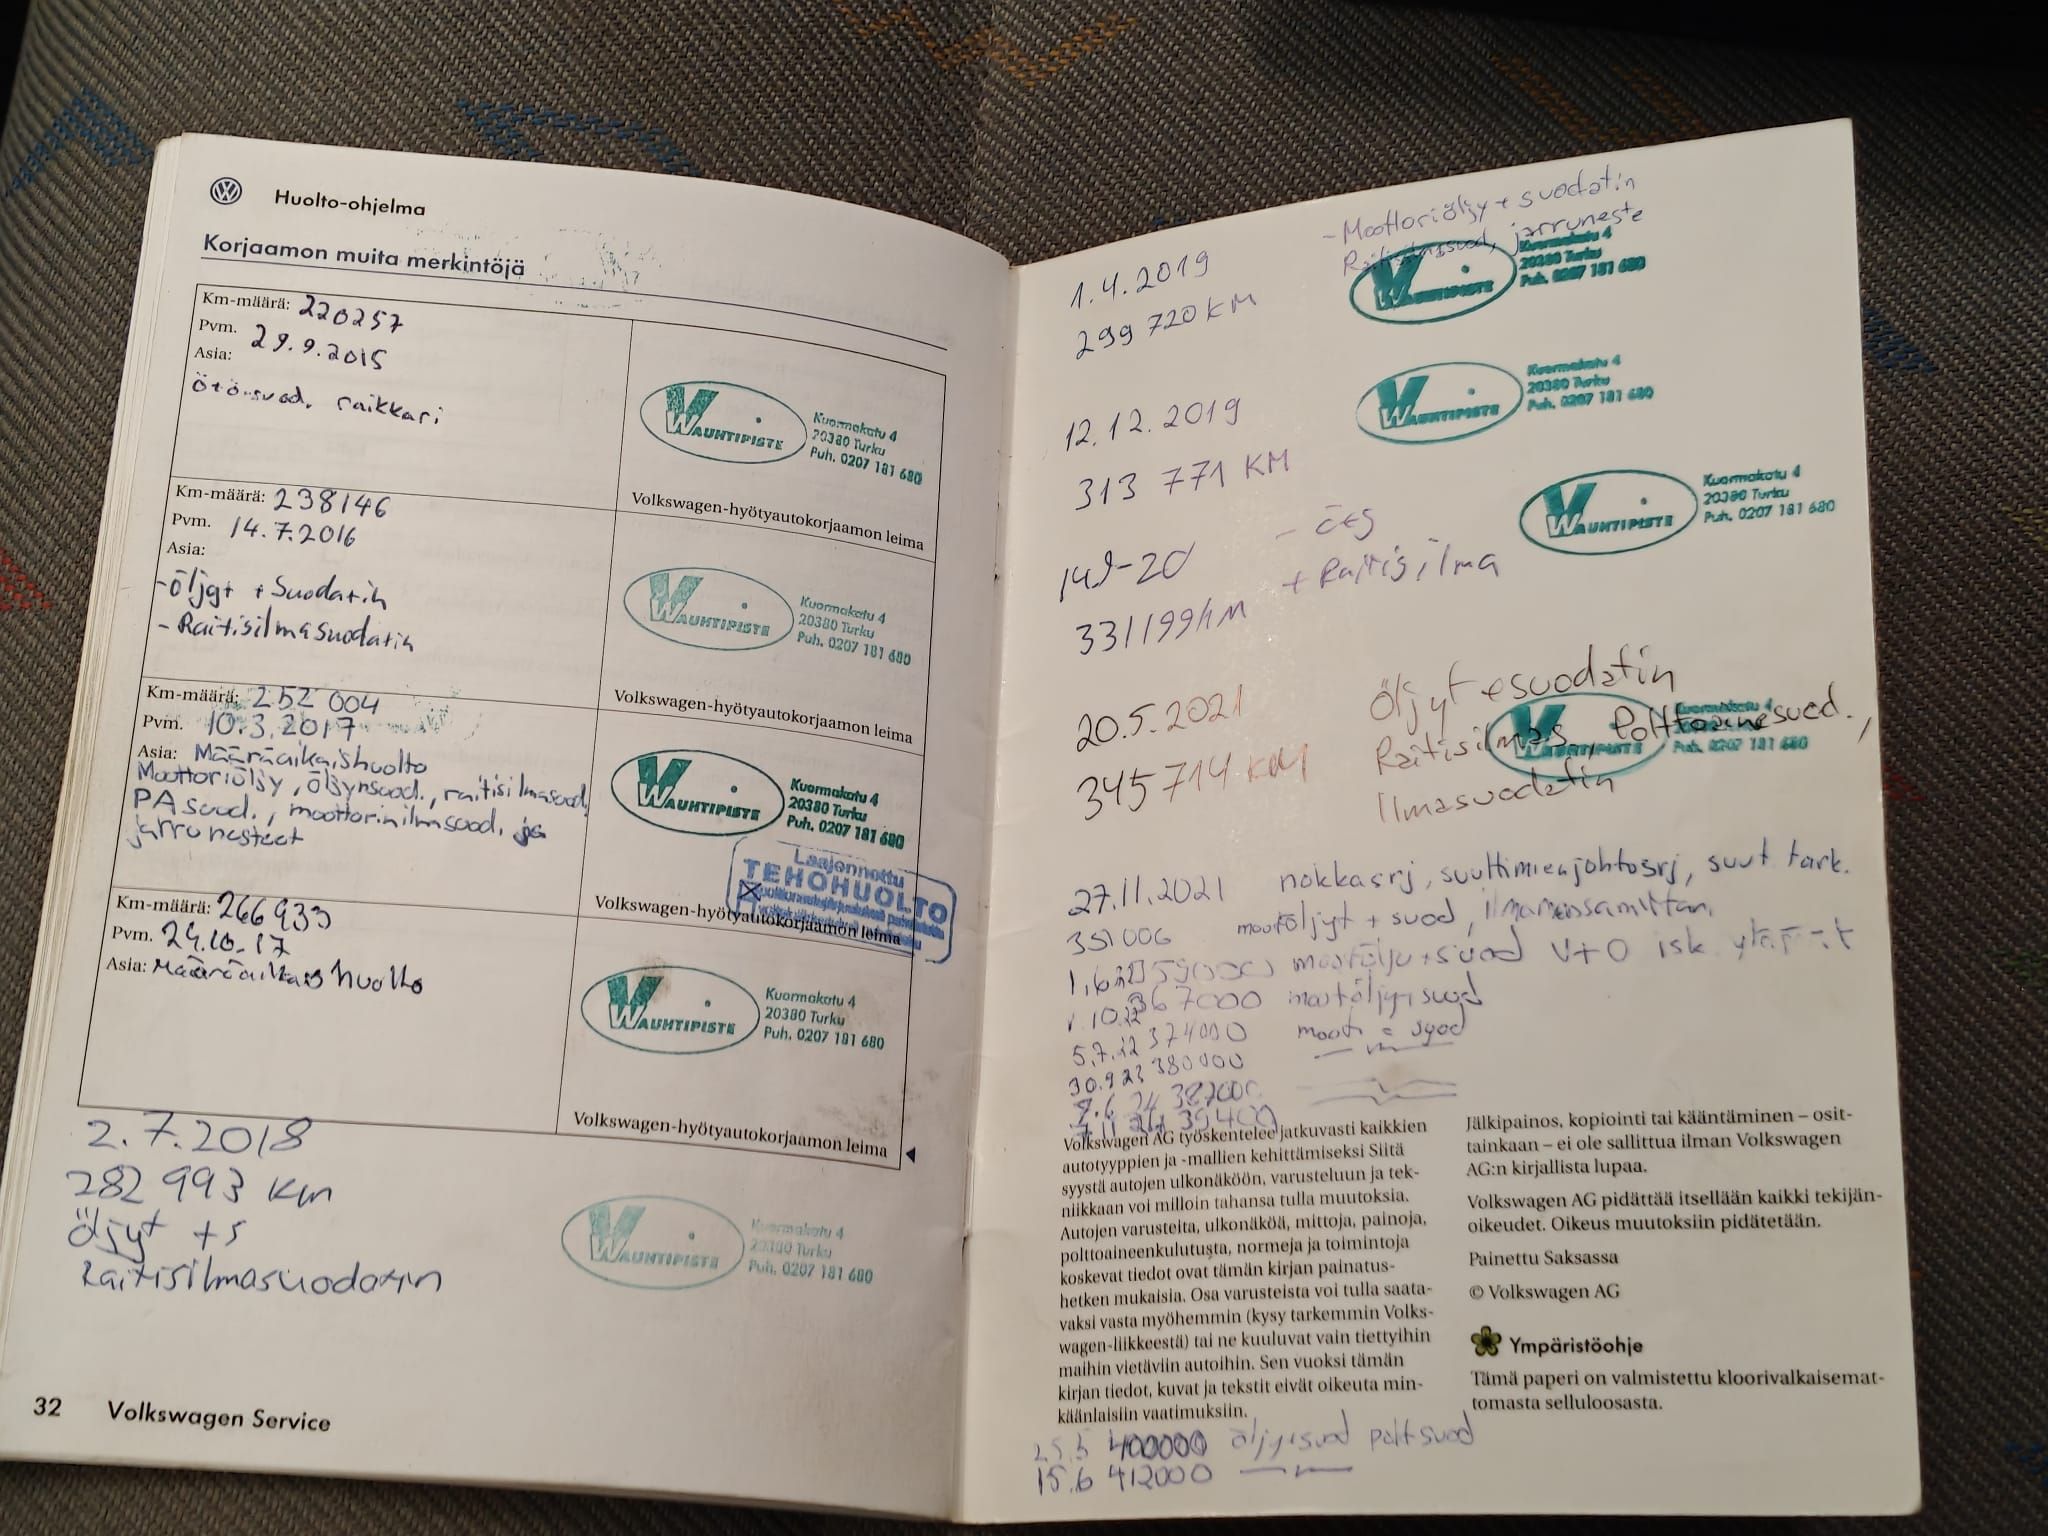 Huolto-ohjelma
Korjaamon muita merkintöjä
Km-määrä: 220257
Pvm. 29.9.2015
Asia:
ö+ö.suod. raikkari
WAUHTIPISTE
Kuormakatu 4
20380 Turku
Puh. 0207 181 680
Volkswagen-hyötyautokorjaamon leima
Km-määrä: 238146
Pvm. 14.7.2016
Asia:
-öljyt + Suodatin
- Raitisilmasuodatin
WAUHTIPISTE
Kuormakatu 4
20380 Turku
Puh. 0207 181 680
Volkswagen-hyötyautokorjaamon leima
Km-määrä: 252 004
Pvm. 10.3.2017
Asia: Määräaikaishuolto
Moottoriöljy, öljynsuod., raitisilmasuod,
PA suod., moottorinilmasuod. ja
jarrunesteet
WAUHTIPISTE
Kuormakatu 4
20380 Turku
Puh. 0207 181 680
Laajennettu
TEHOHUOLTO
Volkswagen-hyötyautokorjaamon leima
Km-määrä: 266933
Pvm. 24.10.17
Asia: Määräaikaishuolto
WAUHTIPISTE
Kuormakatu 4
20380 Turku
Puh. 0207 181 680
Volkswagen-hyötyautokorjaamon leima
2.7.2018
282 993 km
Öljyt +s
Raitisilmasuodatin
WAUHTIPISTE
Kuormakatu 4
20380 Turku
Puh. 0207 181 680
32 Volkswagen Service
- Moottoriöljy + suodatin
Raitisilmasuod, jarruneste
1.4.2019
299 720 KM
WAUHTIPISTE
Kuormakatu 4
20380 Turku
Puh. 0207 181 680
12.12.2019
313 771 KM
WAUHTIPISTE
Kuormakatu 4
20380 Turku
Puh. 0207 181 680
331199km
+ Raitisilma
WAUHTIPISTE
Kuormakatu 4
20380 Turku
Puh. 0207 181 680
20.5.2021
345714 KM
Öljyt+suodatin
Raitisilmas, Polttoainesuod.,
Ilmasuodatin
WAUHTIPISTE
Kuormakatu 4
20380 Turku
Puh. 0207 181 680
27.11.2021 nokkasrj, suuttimienjohtosrj, suut tark.
351006 mootöljyt + suod,
mootölju+suod V+O isk.
1.10.22 367000 mootöljy+suod
374000 suod
30.9.23 380000
Volkswagen AG työskentelee jatkuvasti kaikkien
autotyyppien ja -mallien kehittämiseksi Siitä
syystä autojen ulkonäköön, varusteluun ja tek-
niikkaan voi milloin tahansa tulla muutoksia.
Autojen varusteita, ulkonäköä, mittoja, painoja,
polttoaineenkulutusta, normeja ja toimintoja
koskevat tiedot ovat tämän kirjan painatus-
hetken mukaisia. Osa varusteista voi tulla saata-
vaksi vasta myöhemmin (kysy tarkemmin Volks-
wagen-liikkeestä) tai ne kuuluvat vain tiettyihin
maihin vietäviin autoihin. Sen vuoksi tämän
kirjan tiedot, kuvat ja tekstit eivät oikeuta min-
käänlaisiin vaatimuksiin.
Jälkipainos, kopiointi tai kääntäminen – osit-
tainkaan – ei ole sallittua ilman Volkswagen
AG:n kirjallista lupaa.
Volkswagen AG pidättää itsellään kaikki tekijän-
oikeudet. Oikeus muutoksiin pidätetään.
Painettu Saksassa
© Volkswagen AG
Ympäristöohje
Tämä paperi on valmistettu kloorivalkaisemat-
tomasta selluloosasta.
400000 öljy+suod polt suod
15.6 412000